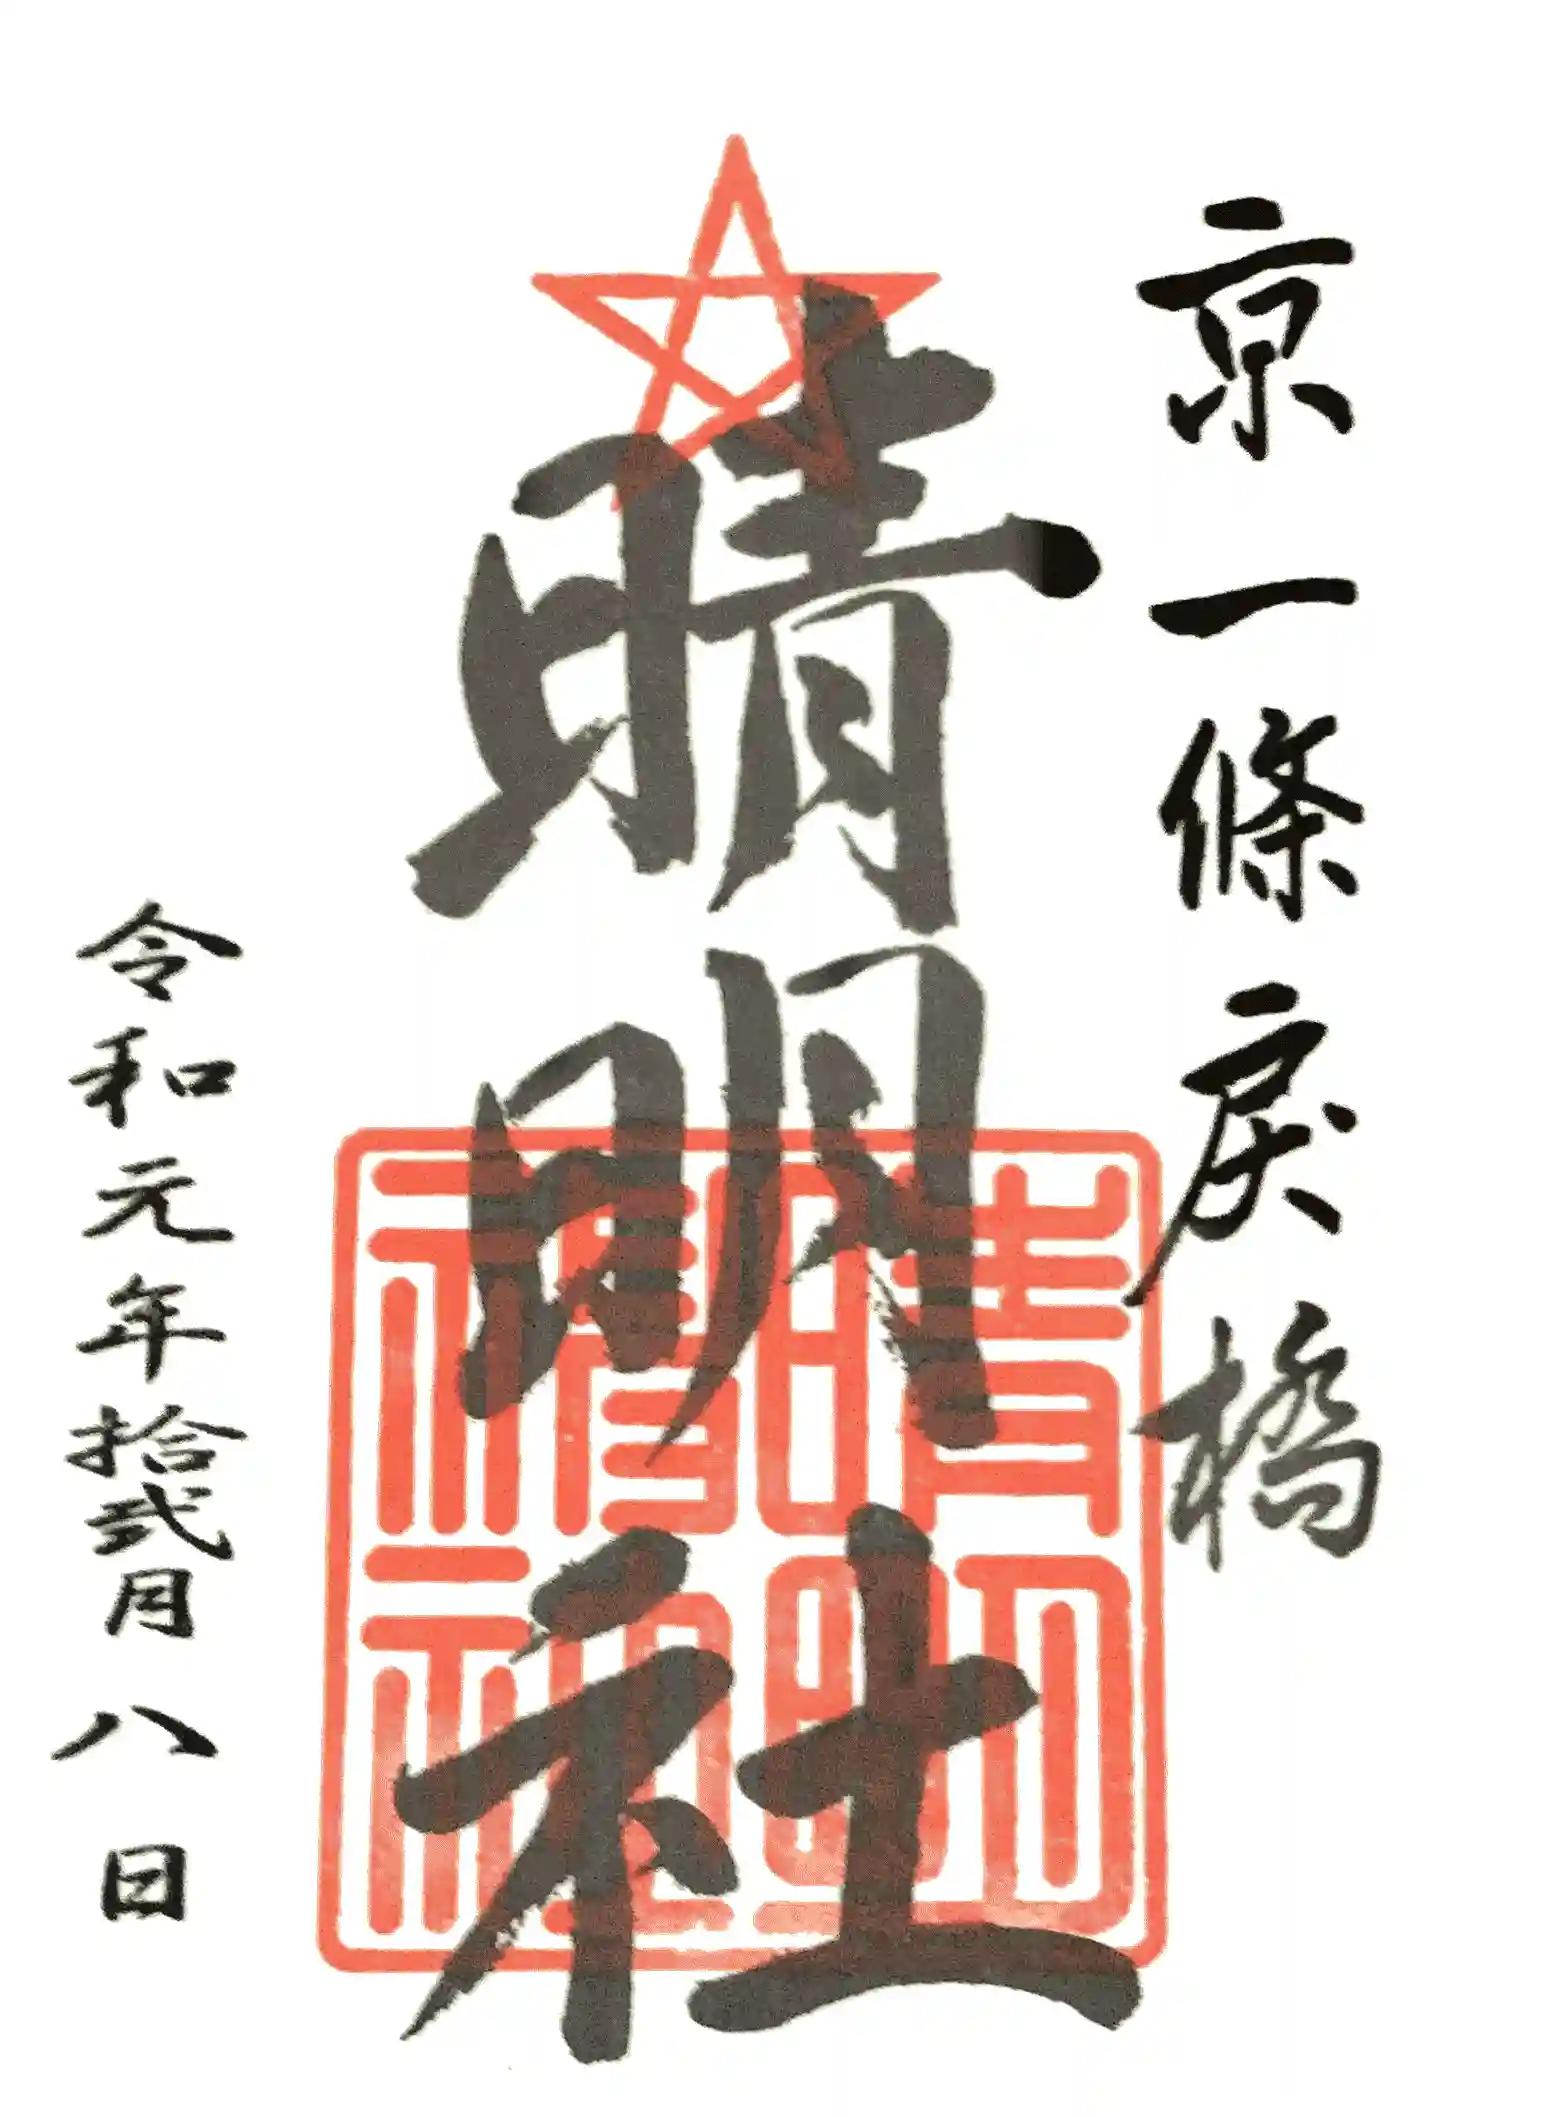 京一條戻橋
晴明社
令和元年拾弐月八日